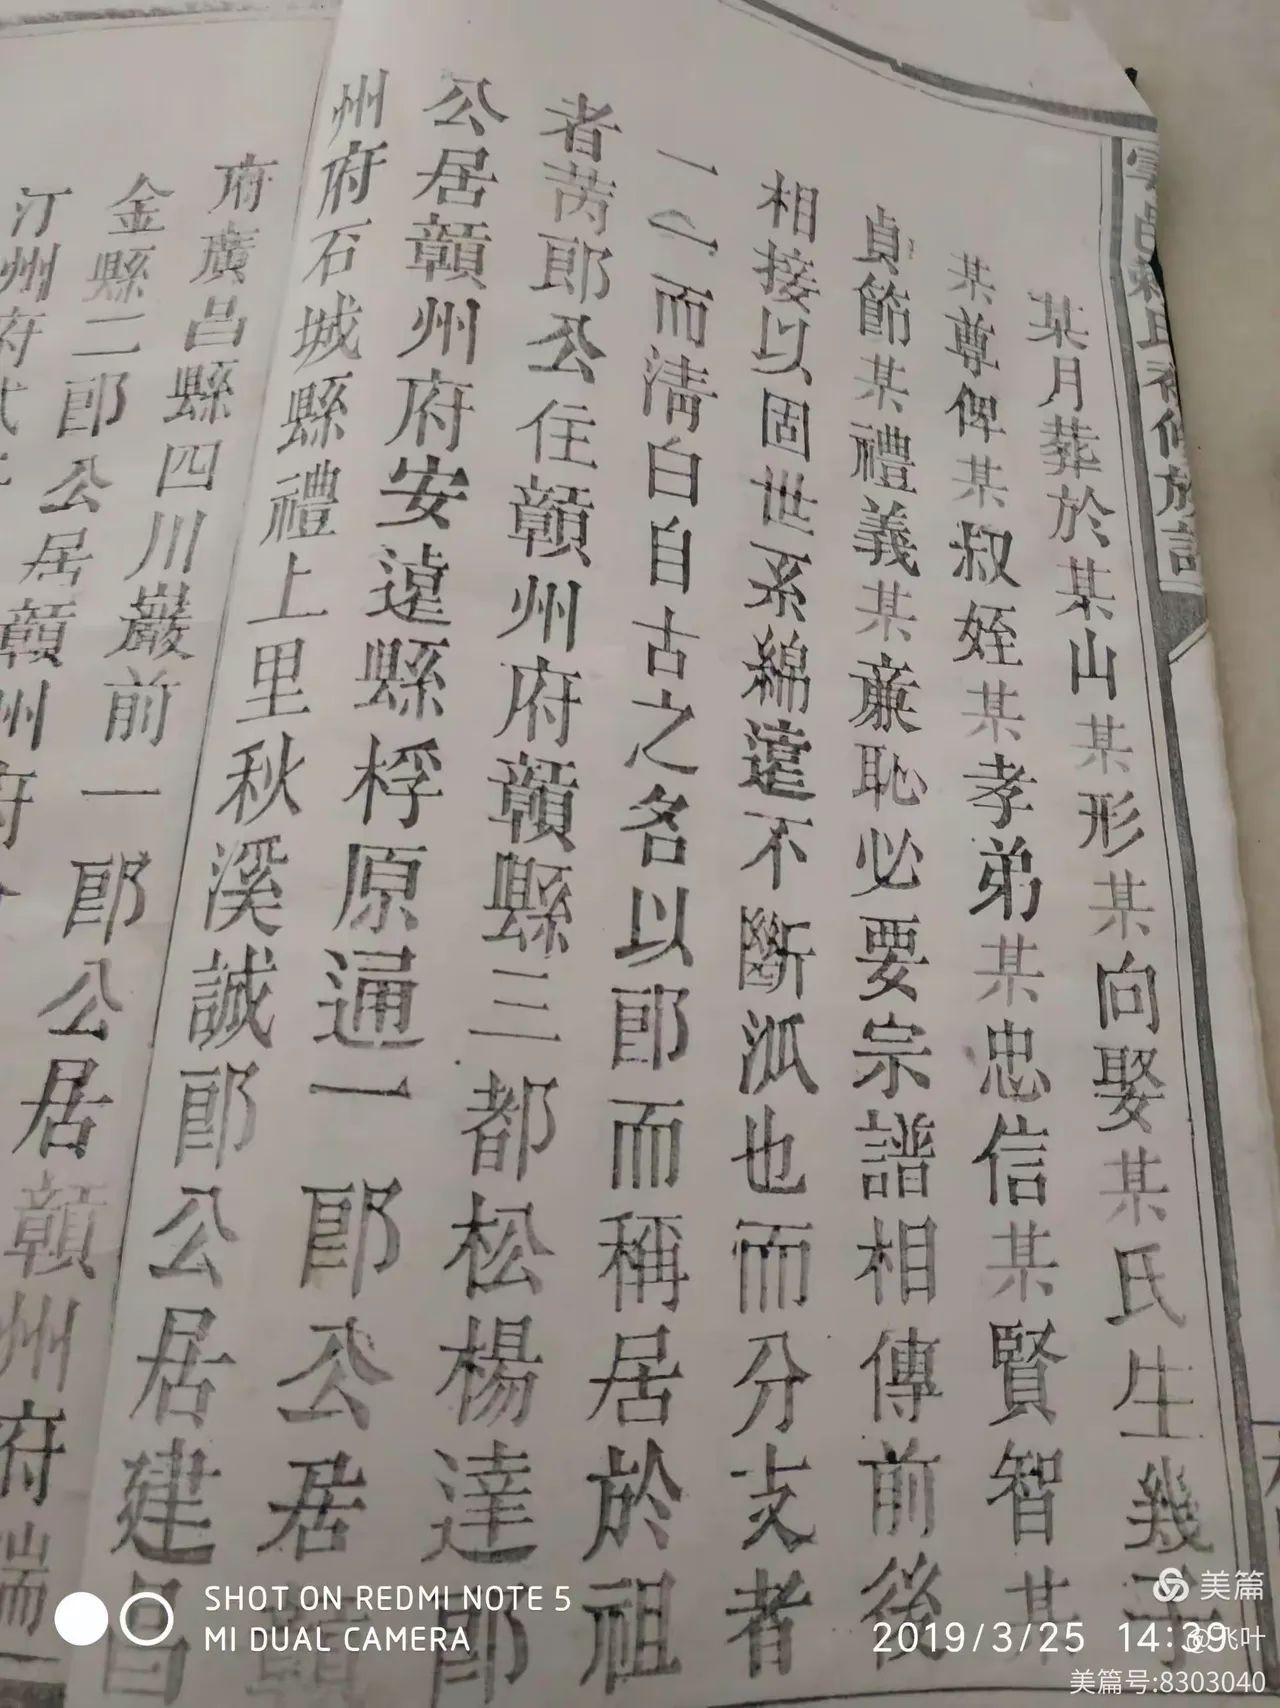 氏
修族譜
某月葬於某山某形某向娶某氏生幾子
某尊俾某叔姪某孝弟某忠信某賢智某
貞節某禮義某亷恥必要宗譜相傳前後
相接以固世系綿遠不斷泒也而分支者
一一而淸白自古之名以郎而稱居於祖
者苪郎公住贛州府贛縣三都松楊達郎
公居贛州府安遠縣桴原通一郎公居贛
州府石城縣禮上里秋溪誠郎公居建昌
府廣昌縣四川巖前一郎公居贛州府瑞
金縣二郎公居贛州府
汀州府
SHOT ON REDMI NOTE 5
MI DUAL CAMERA
美篇
2019/3/25 14:39
@飞叶
美篇号:8303040